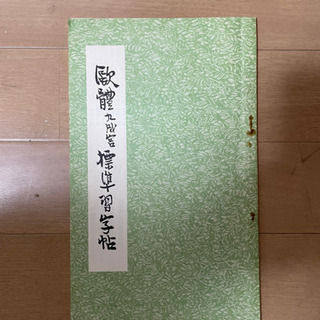 歐體九成宮標準習字帖